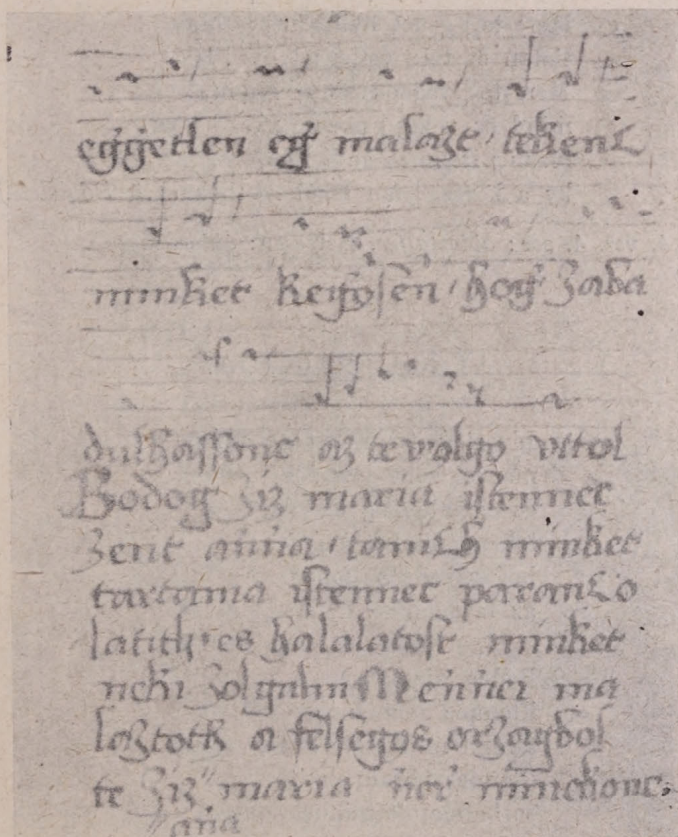 eggetlen eġ malazt tekenċ
minket kegösen hog zaba
dulhassonc az te völgö
Bodog ziz maria istennec
zent anna taniċh minket
tartania istennec paranċo
latith es halalatost minket
neki zolgalni Mennei ma
laztoth a felsegös orzagbol
te ziz maria ner minekönc